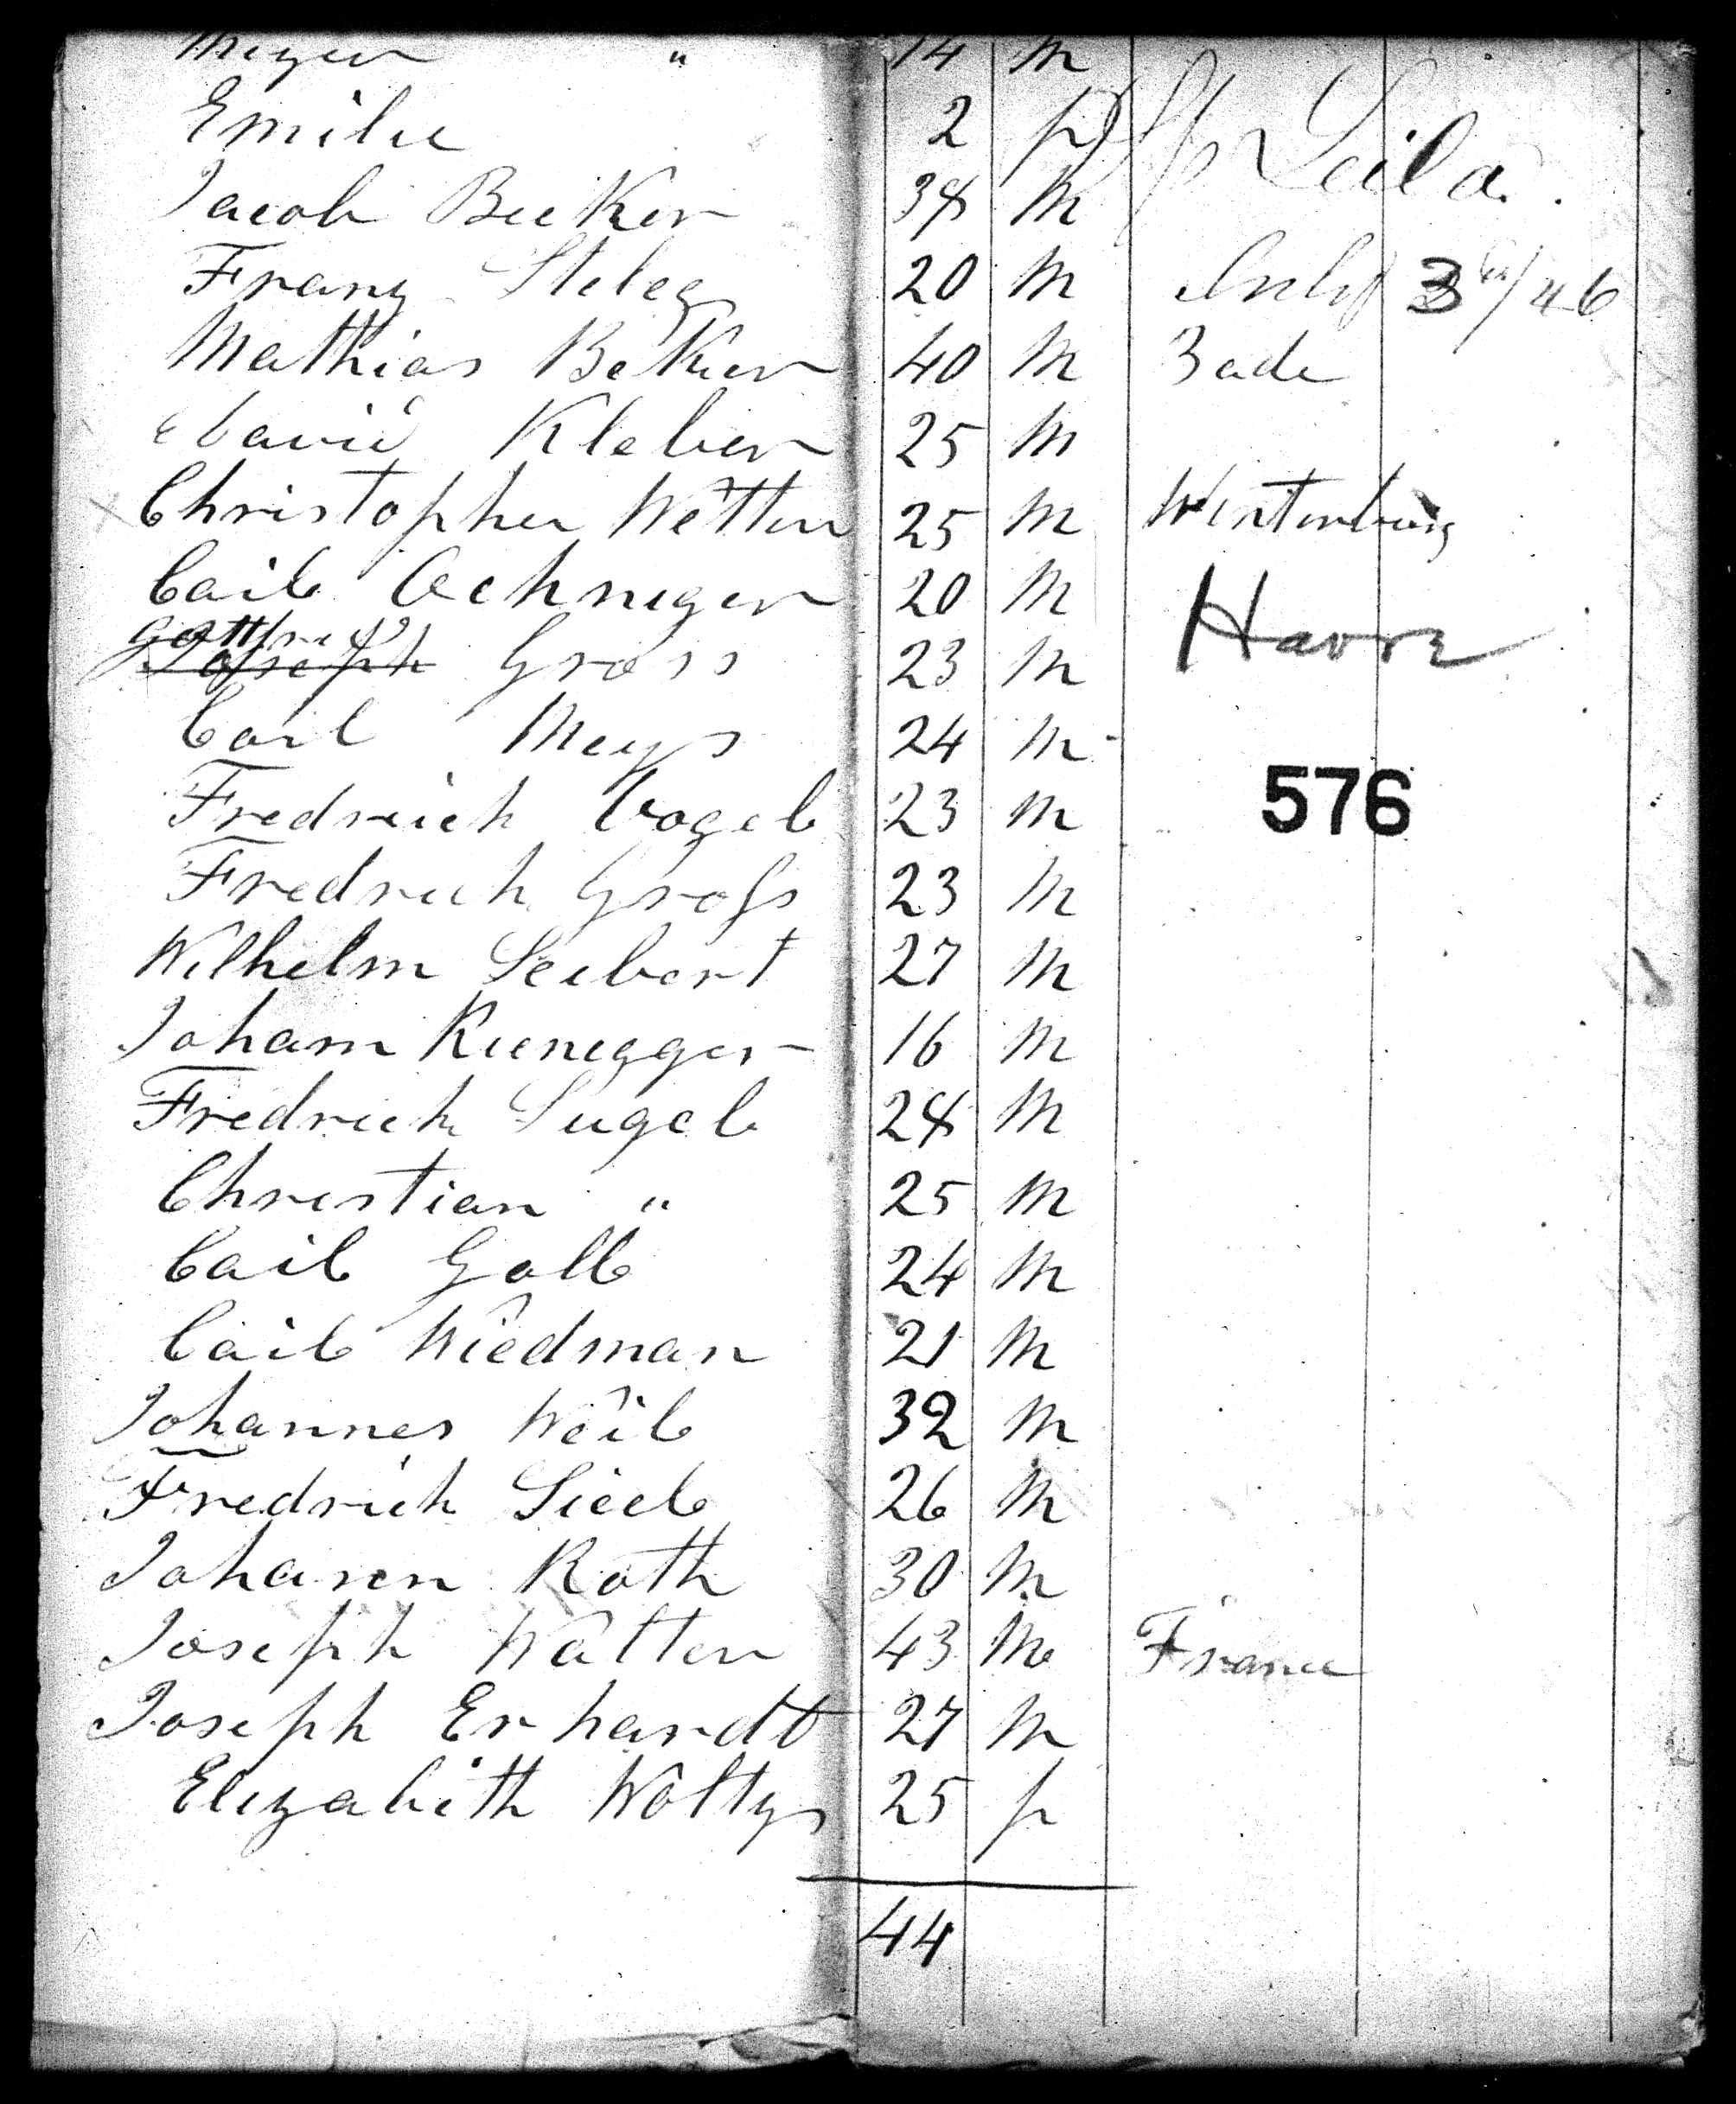 Meyer " 14 M
Emilie 2 f
Sp Leila.
Jacob Becker 38 M
Franz Steleg 20 M July 3 /46
Mathias Beker 40 M Bade
David Kleber 25 M
Christopher Wetter 25 M Wirtenburg
Carl Ochneger 20 M
Havre
Gottfried
Joseph Gross 23 M
Carl Meys 24 M
576
Fredrich Vogel 23 M
Fredrich Gross 23 M
Wilhelm Seibert 27 M
Joham Rienegger 16 M
Fredrich Sugel 28 M
Christian " 25 M
Carl Goll 24 M
Carl Wiedman 21 M
Johannes Weil 32 M
Fredrich Sieel 26 M
Johann Roth 30 M
Joseph Walter 43 M France
Joseph Erhardt 27 M
Elizabeth Woltys 25 f
44